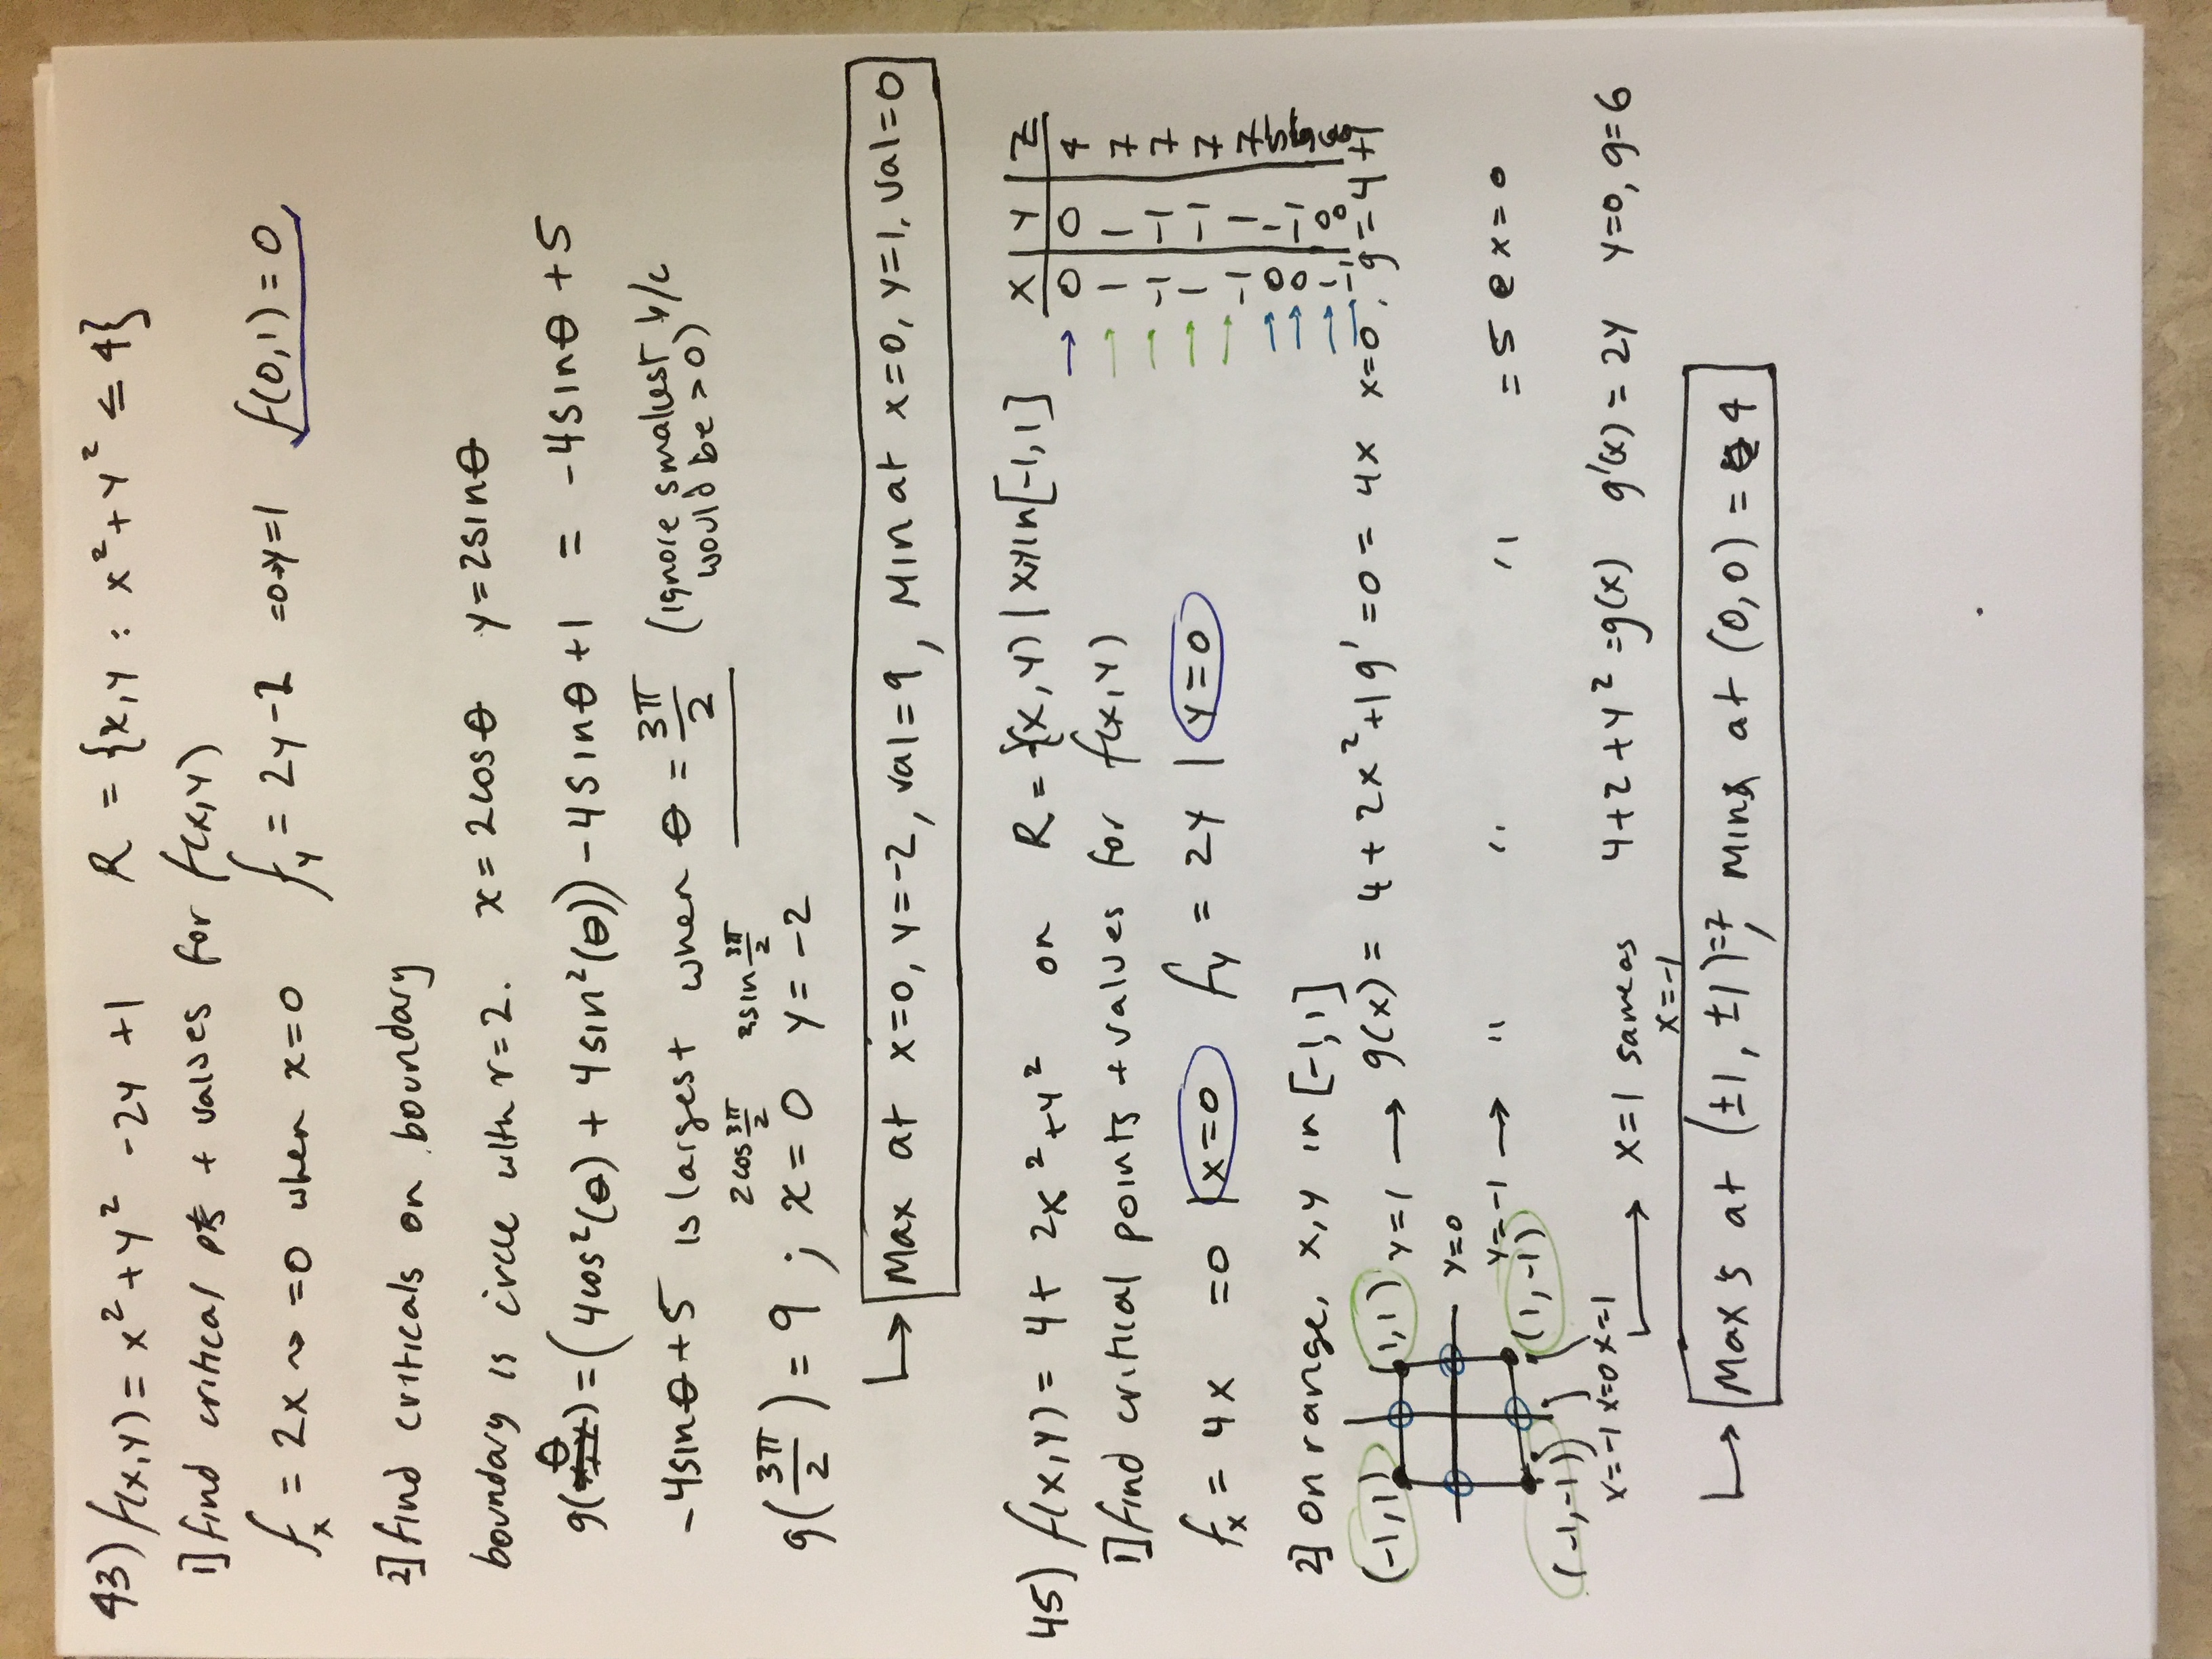 43) f(x,y) = x² + y² - 2y + 1 R = {x,y : x² + y² ≤ 4}
1] find critical pts + values for f(x,y)
fₓ = 2x ~> =0 when x=0 f_y = 2y-2 =0→y=1 f(0,1) = 0
2] find criticals on boundary
boundary is circle with r=2. x = 2cosθ y = 2sinθ
g(θ) = (4cos²(θ) + 4sin²(θ)) - 4sinθ + 1 = -4sinθ + 5
-4sinθ + 5 is largest when θ = 3π/2 (ignore smallest b/c would be > 0)
2cos 3π/2 2sin 3π/2
g(3π/2) = 9 ; x = 0 y = -2
↳ Max at x=0, y=-2, val=9, Min at x=0, y=1, val=0
45) f(x,y) = 4 + 2x² + y² on R = {(x,y) | x,y in [-1,1]
1] find critical points + values for f(x,y)
fₓ = 4x =0 | x=0 f_y = 2y | y=0
x | y | z
→ 0 | 0 | 4
→ 1 | 1 | 7
→ -1 | -1 | 7
→ 1 | -1 | 7
→ -1 | 1 | 7
→ 0 | 1 | 5
→ 0 | -1 | 5
→ 1 | 0 | 6
→ -1 | 0
2] On range, x,y in [-1,1]
(-1,1) (1,1) y=1 → g(x) = 4 + 2x² + 1 g' = 0 = 4x x=0, g=4+1
y=0
y=-1 → " " " = 5 @ x=0
(-1,-1) (1,-1)
x=-1 x=0 x=1
→ x=1 same as x=-1 4+2+y² = g(x) g'(x) = 2y y=0, g=6
↳ Max's at (±1, ±1)=7, Min at (0,0) = 4